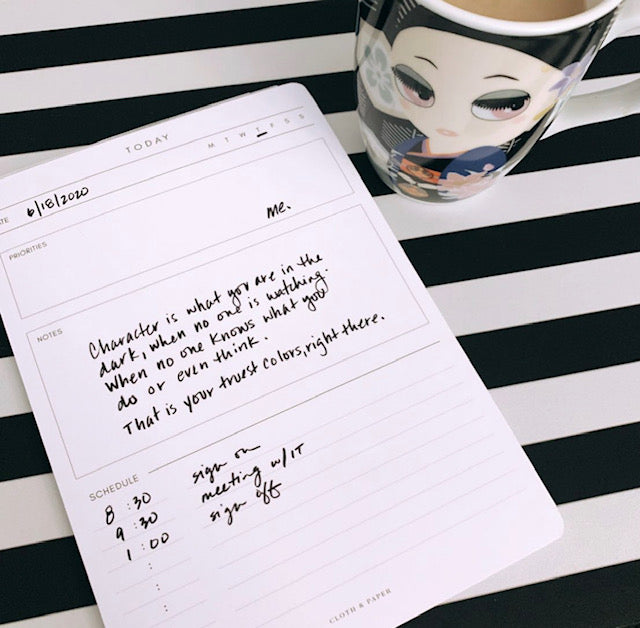 TODAY
M T W T F S S
ATE 6/18/2020
PRIORITIES
me.
NOTES
Character is what you are in the
dark, when no one is watching.
When no one knows what you
do or even think.
That is your truest colors, right there.
SCHEDULE
8:30 sign on
9:30 meeting w/ IT
1:00 sign off
:
:
:
CLOTH & PAPER